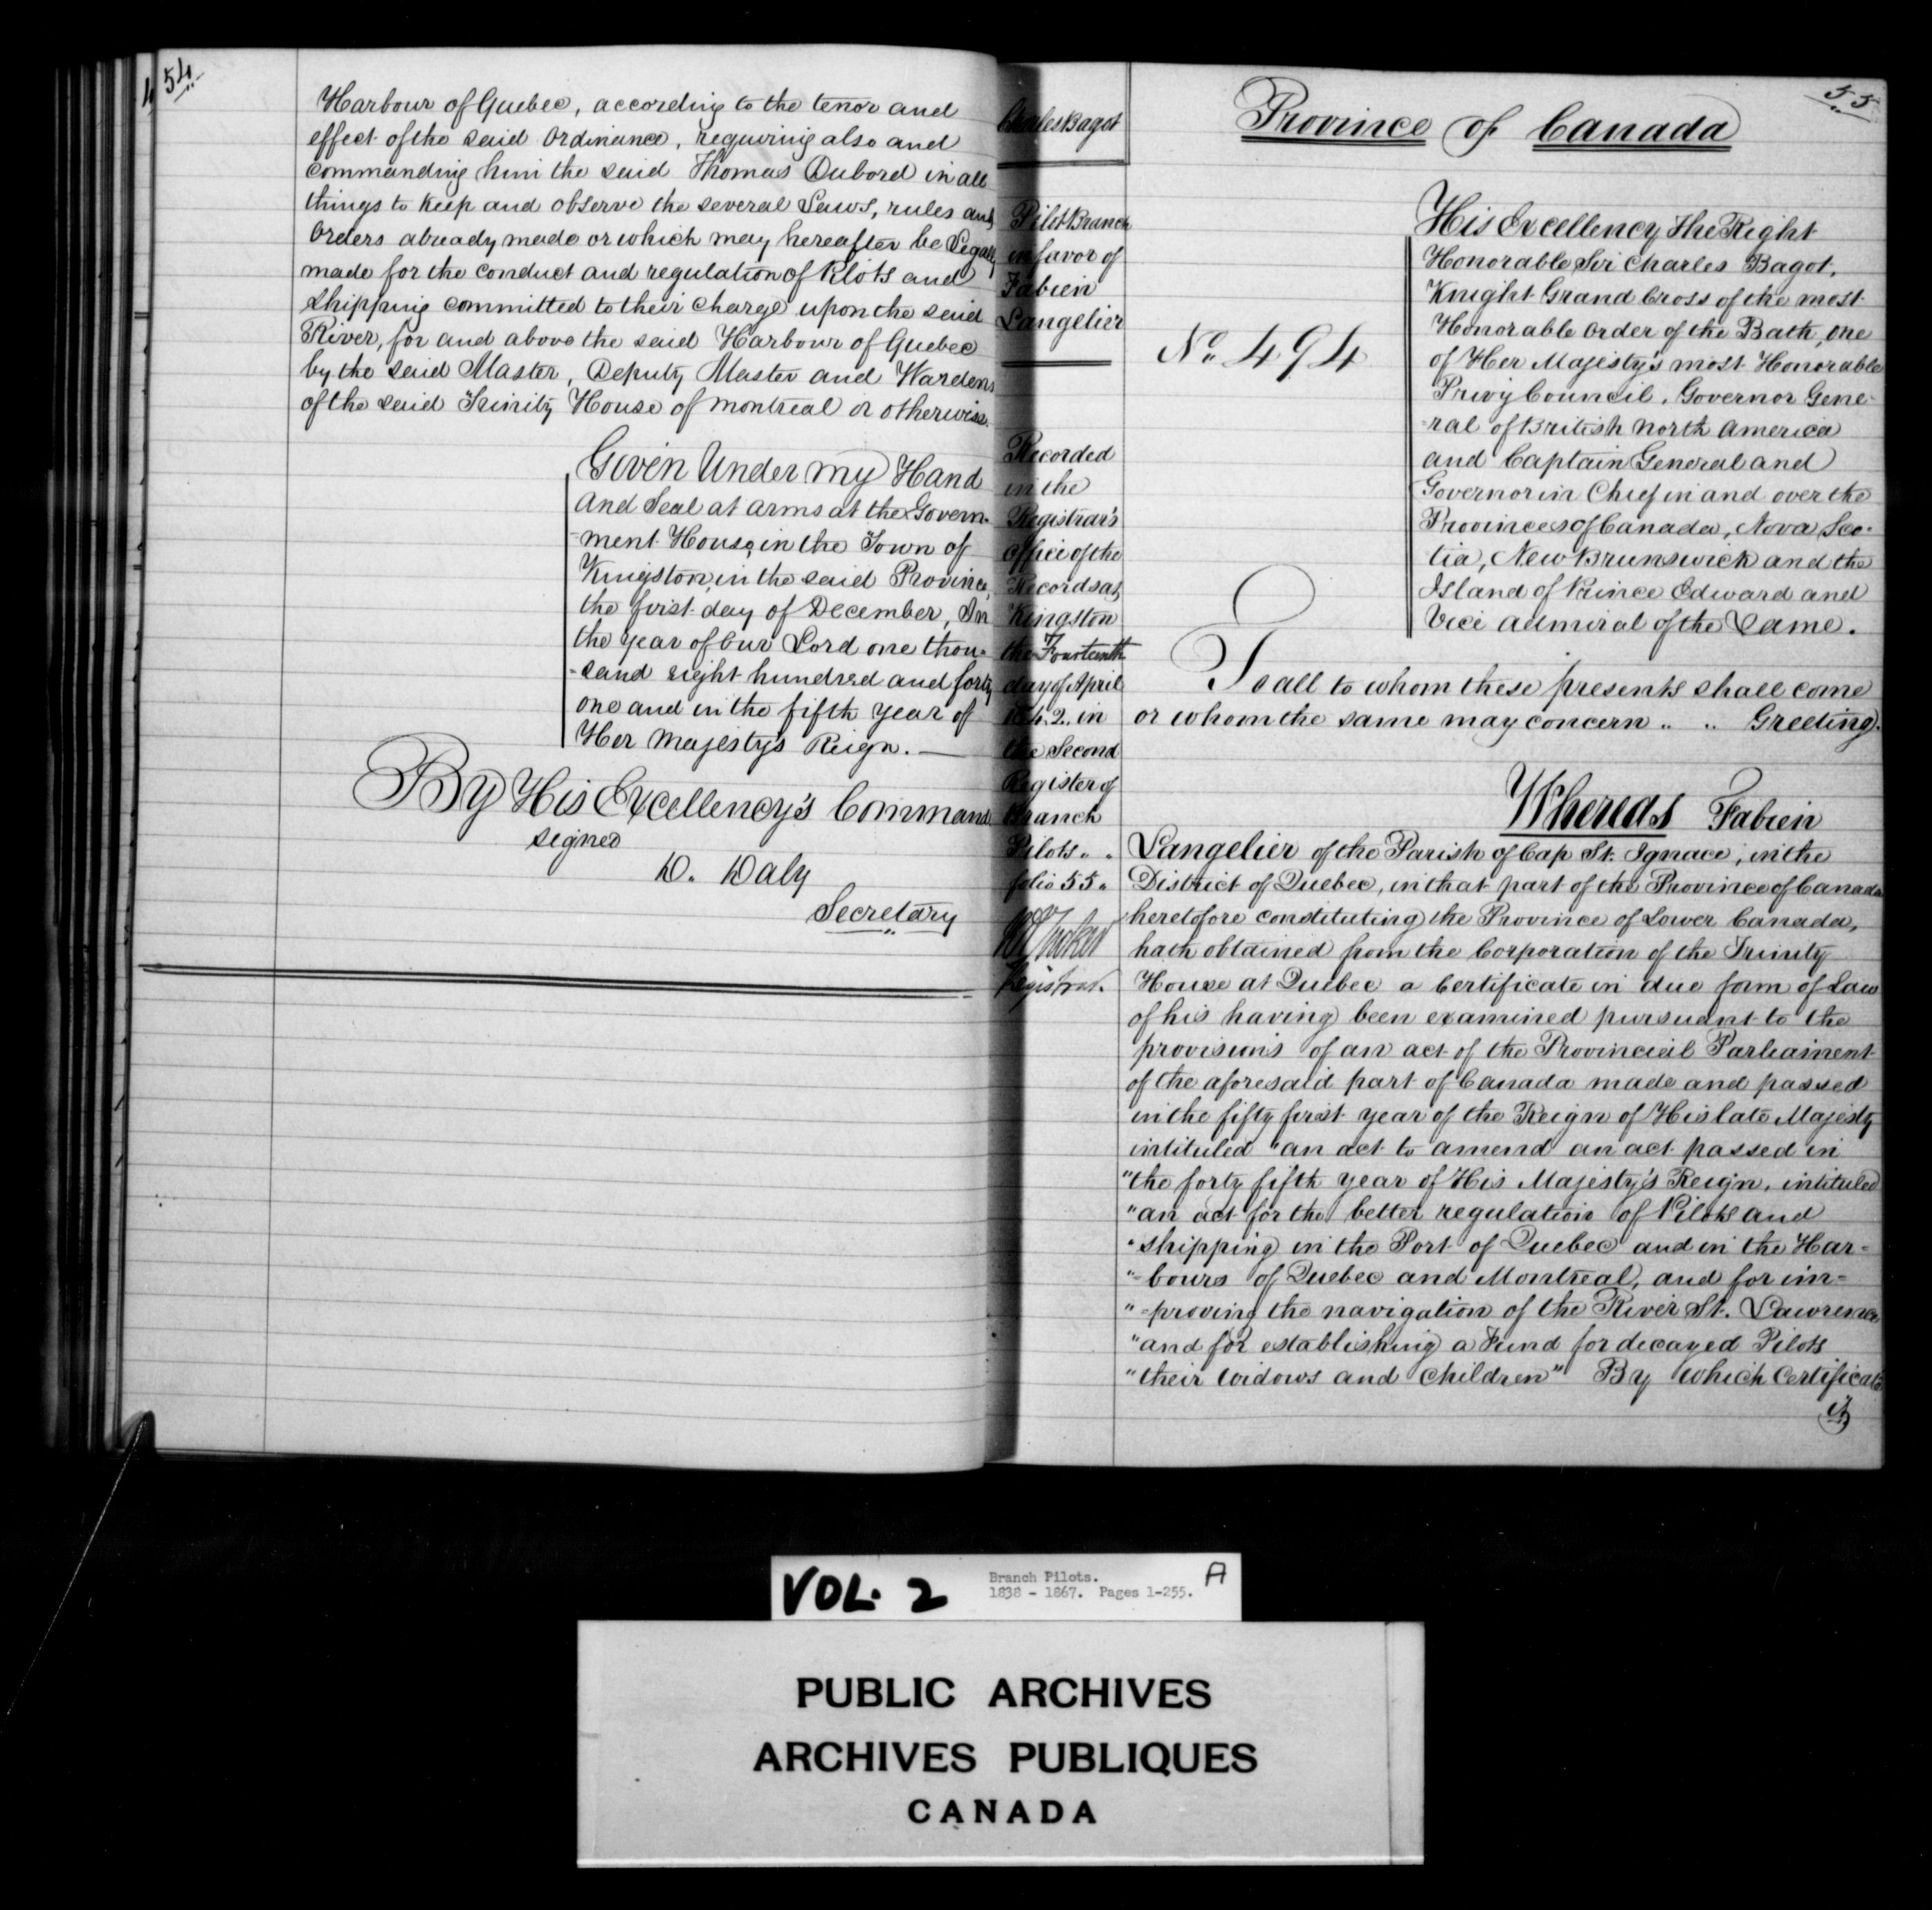 54
Harbour of Quebec, according to the tenor and
effect of the said Ordinance, requiring also and
commanding him the said Thomas Dubord in all
things to keep and observe the several Laws, rules and
Orders already made or which may hereafter be Legally
made for the conduct and regulation of Pilots and
Shipping committed to their charge upon the said
River, for and above the said Harbour of Quebec
by the said Master, Deputy Master and Wardens
of the said Trinity House of Montreal or otherwise.
Given Under my Hand
And Seal at arms at the Govern-
-ment House, in the Town of
Kingston, in the said Province,
the first day of December, In
the year of Our Lord one thou-
-sand eight hundred and forty
one and in the fifth year of
Her Majesty's Reign. —
By His Excellency's Command
signed
D. Daly
Secretary
Charles Bagot
Pilot Branch
in favor of
Fabien
Langelier
Recorded
in the
Registrar's
office of the
Records at
Kingston
the Fourteenth
day of April
1842 in
the Second
Register of
Branch
Pilots " "
folio 55 "
Registrar.
55
Province of Canada
No. 494
His Excellency The Right
Honorable Sir Charles Bagot,
Knight Grand Cross of the most
Honorable Order of the Bath, one
of Her Majesty's most Honorable
Privy Council, Governor Gene-
-ral of British North America
and Captain General and
Governor in Chief in and over the
Provinces of Canada, Nova Sco-
tia, New Brunswick and the
Island of Prince Edward and
Vice Admiral of the Same.
To all to whom these presents shall come
or whom the same may concern " " Greeting.
Whereas Fabien
Langelier of the Parish of Cap St. Ignace, in the
District of Quebec, in that part of the Province of Canada
heretofore constituting the Province of Lower Canada,
hath obtained from the Corporation of the Trinity
House at Quebec a Certificate in due form of Law
of his having been examined pursuant to the
provisions of an act of the Provincial Parliament
of the aforesaid part of Canada made and passed
in the fifty first year of the Reign of His late Majesty
intituled "an act to amend an act passed in
"the forty fifth year of His Majesty's Reign, intituled
"an act for the better regulation of Pilots and
"shipping in the Port of Quebec and in the Har-
"-bours of Quebec and Montreal, and for im-
"-proving the navigation of the River St. Lawrence
"and for establishing a Fund for decayed Pilots
"their widows and children" By which Certificate
VOL. 2
Branch Pilots.
1838 - 1867. Pages 1-255.
A
PUBLIC ARCHIVES
ARCHIVES PUBLIQUES
CANADA